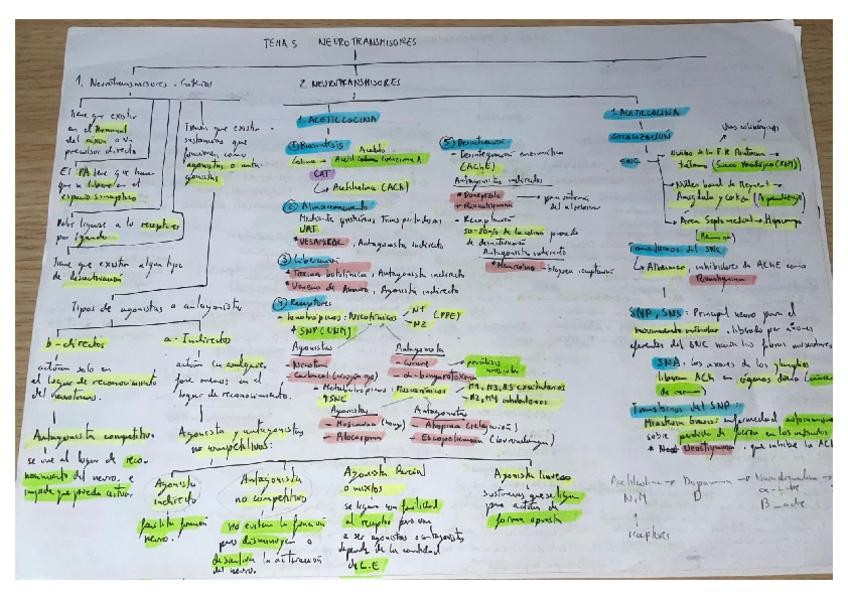 TEMA 5 NEUROTRANSMISORES
1. Neurotransmisores. Criterios
Tiene que existir
en el terminal
del axon o un
precursor directo
El PA tiene que hacer
que se libere en el
espacio sináptico
Poder ligarse a los receptores
por ligando
Tiene que existir algún tipo
de desactivación
Tienen que existir
sustancias que
funcionen como
agonistas o anta-
gonistas
Tipos de agonistas o antagonistas
b-directos
actúan solo en
el lugar de reconocimiento
del neurotrans.
Antagonista competitivo
se une al lugar de reco-
nocimiento del neuro. e
impide que pueda activar.
a. Indirectos
actúan en cualquier
fase menos en el
lugar de reconocimiento.
Agonista y antagonistas
no competitivos:
Agonista
indirecto
facilita función
neuro.
Antagonista
no competitivo
No evitan la función
pero disminuyen o
la activación
del neuro.
Agonista Parcial
o mixtos
se ligan con facilidad
al receptor pero van
a ser agonistas o antagonistas
depende de la cantidad
de L.E
Agonista Inverso
sustancias que se ligan
para actuar de
forma opuesta
2 NEUROTRANSMISORES
1. ACETILCOLINA
① Biosíntesis
Colina + Acetil coenzima A
CAT
Acetilcolina (ACh)
② Almacenamiento
Mediante proteínas Transportadoras
VAT
* VESAMICOL. Antagonista indirecto
③ Liberación
* Toxina botulínica. Antagonista indirecto
* Veneno de Araña. Agonista indirecto
④ Receptores
- Ionotrópicos: Nicotínicos
N1
N2
(PPE)
↑ SNP (UNM)
Agonistas
- Nicotina
- Carbacol
Antagonista
- Curare
- α-bungarotoxina
parálisis
muscular
- Metabotrópicos: Muscarínicos
M1, M3, M5 excitadores
M2, M4 inhibidores
↑ SNC
Agonistas
- Muscarina (hongo)
- Pilocarpina
Antagonistas
- Atropina
- Escopolamina
⑤ Desactivación
- Desintegración enzimática
(AChE)
Antagonistas indirectos
* Donepezilo
* Rivastigmina
para síntomas
del alzheimer
- Recaptación
50-80% de la colina procede
de desactivación
Antagonista indirecto
* Hemicolinio - bloquea recaptación
1. ACETILCOLINA
LOCALIZACIÓN
SNC
Vías colinérgicas
Núcleo de la F.R Pontina
tálamo (Sueño Paradójico (REM))
Núcleo basal de Meynert -
Amígdala y Cortex (Aprendizaje)
Área Septo medial → Hipocampo
(Memoria)
Trastornos del SNC
Alzheimer, inhibidores de AChE como
Rivastigmina
SNP, SNS: Principal neuro para el
movimiento muscular, liberado por axones
eferentes del SNC hacia las fibras musculares
SNA. Los axones de los ganglios
liberan ACh en órganos diana
Trastornos del SNP:
Miastenia gravis: enfermedad autoinmune
sobre perdida de fuerza en los músculos
* Neostigmina, que inhibe la ACh
Acetilcolina → Dopamina → Noradrenalina →
N, M
D
α-
β-
receptores